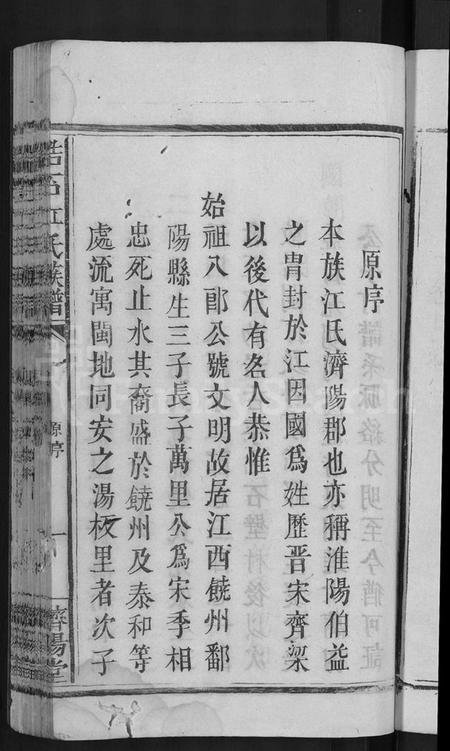 原序
本族江氏濟陽郡也亦稱淮陽伯益
之胄封於江因國為姓歷晋宋齊梁
以後代有名人恭惟
始祖八郎公號文明故居江西饒州鄱
陽縣生三子長子萬里公為宋季相
忠死止水其裔盛於饒州及泰和等
處流寓閩地同安之湯板里者次子
江氏族譜
原序
一
濟陽堂